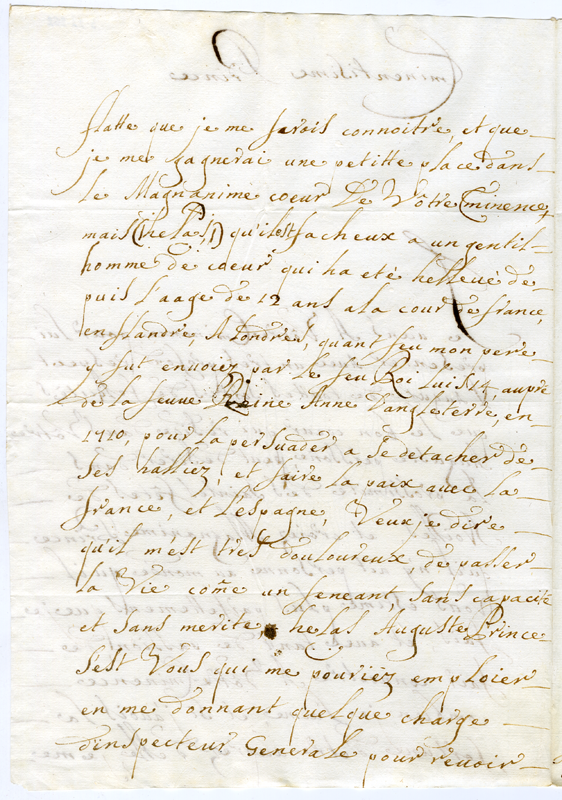 flatte que je me ferois connoitre, et que
je me gagnerai une petitte place dans
le Magnanime coeur De Votre Eminence,
mais (helas!) qu'il est facheux a un gentil-
homme de coeur qui ha eté hellevé de
puis l'aage de 12 ans a la cour de france,
en flandre A Londres, quant feu mon pere
y fut envoiez par le feu Roi Luis 14, aupre
de la feuue Reine Anne d'angleterre, en
1710, pour la persuader a se detacher de
ses halliez, et faire la paix auec la
france, et l'espagne, Veux je dire
qu'il m'est tres douloureux, de passer
la Vie come un feneant, sans capacité
et sans merite, helas Auguste Prince
s'est Vous qui me pouriez emploier
en me donnant quelque charge
d'inspecteur Generale pour reuoir